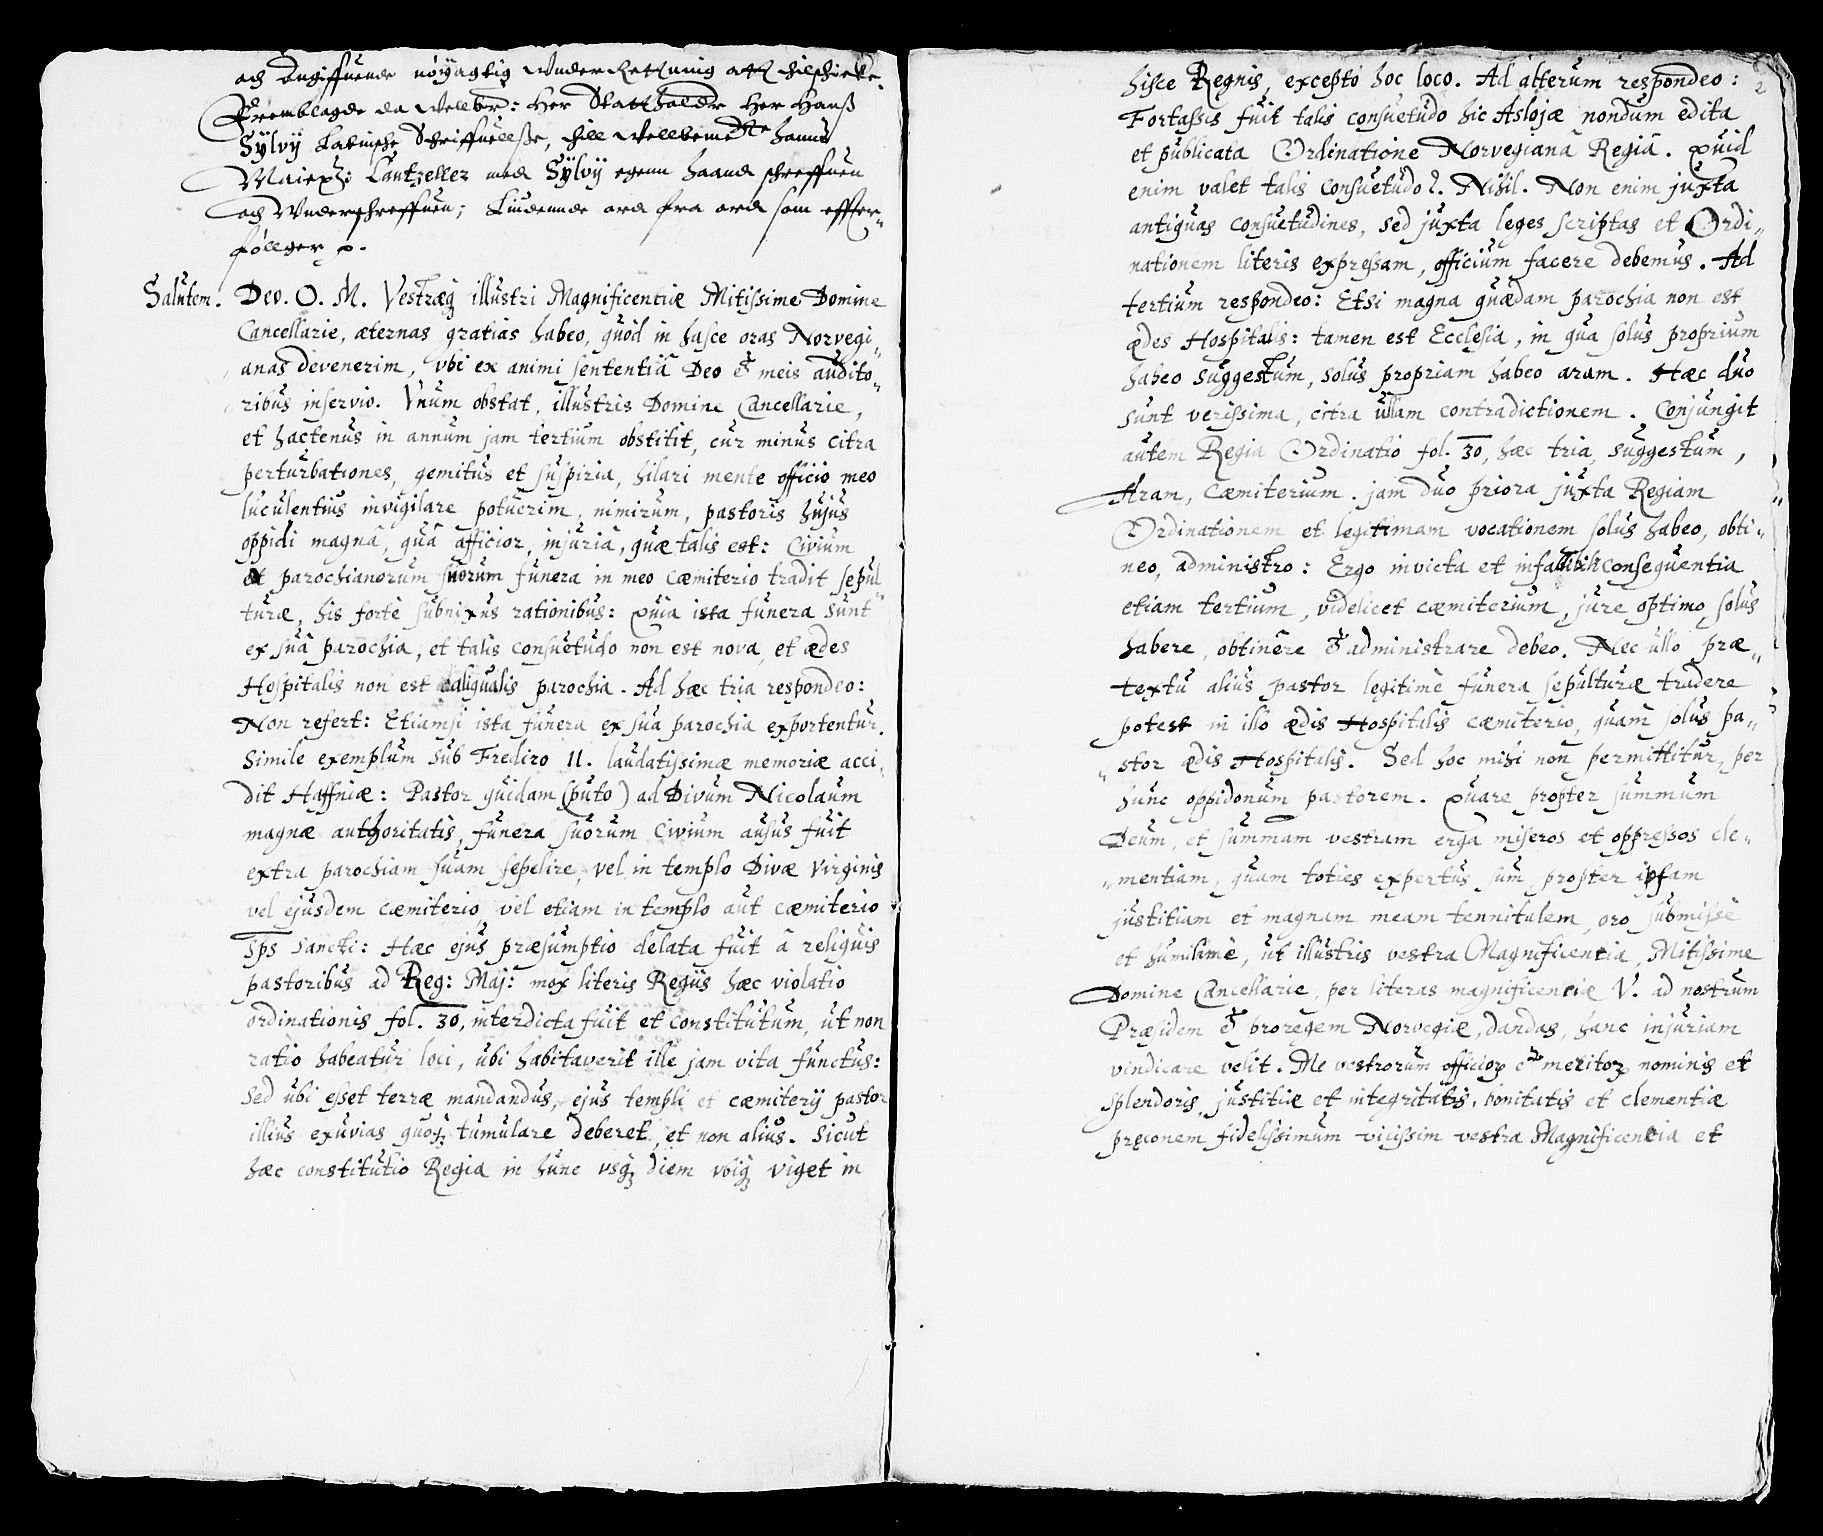 och Angiffuende nöÿagtig Vnder Rettning att thilskicke.
Fremblagde da Velbr: Her Statholdr Her Hanß
Sÿlvÿ Latinsche Schriffuellsse, thill Velbeme<sup>te</sup> hanns
Maiestz: Cantzeller med Sÿlvÿ egenn haand schreffuen
och Vnderschreffuen; Liudennde ord fra ord som effter„
föllger
Salutem. Deo. O. M. Vestræq illustri Magnificentiæ Mitissime Domine
Cancellarie, æternas gratias habeo, quòd in hasce oras Norvegi„
anas devenerim, vbi ex animi sententiâ Deo & meis audito„
ribus inservio. Vnum obstat, illustris Domine Cancellarie,
et hactenus in annum jam tertium obstitit, cur minus citra
perturbationes, gemitus et suspiria, hilari mente officio meo
luculentius invigilare potuerim, nimirum, pastoris hujus
oppidi magnâ, quâ afficior, injuriâ, quæ talis est: Civium
et parochianorum suorum funera in meo cæmiterio tradit sepul„
turæ, his fortè subnixus rationibus: Quia ista funera sunt
ex suâ parochia, et talis consuetudo non est nova, et ædes
Hospitalis non est aliqualis parochia. Ad hæc tria respondeo:
Non refert: Etiamsi ista funera ex sua parochia exportentur.
Simile exemplum sub Frediro II. laudatissimæ memoriæ acci„
dit Haffniæ: Pastor quidam (puto) ad Divum Nicolaum
magnæ authoritatis, funera suorum Civium ausus fuit
extra parochiam suam sepelire, vel in templo Divæ Virginis
vel ejusdem cæmiterio, vel etiam in templo aut cæmiterio
Sps Sancti: Hæc ejus præsumptio delata fuit â reliquis
pastoribus ad Reg: Maj: mox literis Regiis hæc violatio
ordinationis fol. 30, interdicta fuit et constitutum, ut non
ratio habeatur loci, ubi habitaverit ille jam vita functus:
Sed ubi esset terræ mandandus, ejus templi et cæmiterij pastor
illius exuvias quoq; tumulare deberet, et non alius. Sicut
hæc constitutio Regia in hunc usq; diem vbiq; viget in
2
hisce Regnis, excepto hoc loco. Ad alterum respondeo:
Fortassis fuit talis consuetudo hic Aslojæ nondum edita
et publicata Ordinatione Norvegianâ Regiâ. Quid
enim valet talis consuetudo? Nihil. Non enim juxta
antiquas consuetudines, sed juxta leges scriptas et Ordi„
nationem literis expressam, officium facere debemus. Ad
tertium respondeo: Etsi magna quædam parochia non est
ædes Hospitalis: tamen est Ecclesia, in qua solus proprium
habeo suggestum, solus propriam habeo aram. Hæc duo
sunt verissima, citra ullam contradictionem. Conjungit
autem Regia Ordinatio fol. 30, hæc tria, suggestum,
Aram, Cæmiterium. jam duo priora juxta Regiam
Ordinationem et legitimam vocationem solus habeo, obti„
neo, administro: Ergo invicta et infallibili consequentia
etiam tertium, videlicet cæmiterium, jure optimo, solus
habere, obtinere & administrare debeo. Nec ullo præ„
textu alius pastor legitimè funera sepulturæ tradere
potest in illo ædis Hospitalis cæmiterio, quàm solus pa„
„stor ædis Hospitalis. Sed hoc mihi non permittitur, per
hunc oppidonum pastorem. Quare propter summum
Deum, et summam vestram erga miseros et oppressos cle„
„mentiam, quam toties expertus sum, propter ipsam
justitiam et magnam meam tennitulem, oro submissè
et humilimè, ut illustris vestra Magnificentia, Mitissime
Domine Cancellarie, per literas magnificentiæ V. ad nostrum
Præsidem & proregem Norvegiæ, dandas, hanc injuriam
vindicare velit. Me vestrorum officioꝝ & meritoꝝ nominis et
splendoris, justitiæ et integritatis, bonitatis et clementiæ
præconem fidelissimum vicissim vestra Magnificentia et